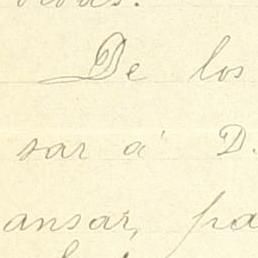 De los
sar á D.
ansar, pa